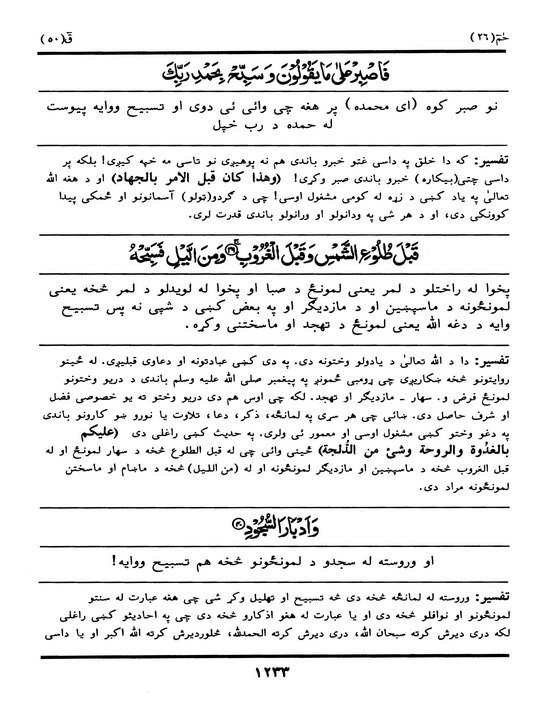 حٰمٓ (٢٦)
قٓ (٥٠)
فَاصْبِرْ عَلٰى مَا يَقُوْلُوْنَ وَ سَبِّحْ بِحَمْدِ رَبِّكَ
نو صبر کوه (ای محمده) پر هغه چی وائی ئی دوی او تسبیح ووایه پیوست
له حمده د رب خپل
تفسیر: که دا خلق په داسی غتو خبرو باندی هم نه پوهیږی نو تاسی مه خپه کیږی! بلکه پر
داسی چتی(بیکاره) خبرو باندی صبر وکړی! (وهذا كان قبل الامر بالجهاد) او د هغه الله
تعالیٰ په یاد کښی د زړه له کومی مشغول اوسی! چی د گردو(ټولو) آسمانونو او ځمکی پیدا
کوونکی دی، او د هر شی په ودانولو او ورانولو باندی قدرت لری.
قَبْلَ طُلُوْعِ الشَّمْسِ وَ قَبْلَ الْغُرُوْبِ ۝٣٩ وَ مِنَ الَّيْلِ فَسَبِّحْهُ
پخوا له راختلو د لمر یعنی لمونځ د صبا او پخوا له لویدلو د لمر څخه یعنی
لمونځونه د ماسپښین او د مازدیگر او په بعض کښی د شپی نه پس تسبیح
وایه د دغه الله یعنی لمونځ د تهجد او ماسختنی وکړه.
تفسیر: دا د الله تعالیٰ د یادولو وختونه دی. په دی کښی عبادتونه او دعاوی قبلیږی. له ځینو
روایتونو څخه ښکاریږی چی ړومبی ځمونږ په پیغمبر صلی الله علیه وسلم باندی د دریو وختونو
لمونځ فرض و. سهار ـ مازدیگر او تهجد. لکه چی اوس هم دی دریو وختو ته یو خصوصی فضل
او شرف حاصل دی. ښائی چی هر سړی په لمانځه، ذکر، دعا، تلاوت یا نورو ښو کارونو باندی
په دغو وختو کښی مشغول اوسی او معمور ئی ولری. په حدیث کښی راغلی دی (علیکم
بالغدوة والروحة وشئ من الدلجة) ځینی وائی چی له قبل الطلوع څخه د سهار لمونځ او له
قبل الغروب څخه د ماسپښین او مازدیگر لمونځونه او له (من اللیل) څخه د ماښام او ماسختن
لمونځونه مراد دی.
وَ اَدْبَارَ السُّجُوْدِ ۝٤٠
او وروسته له سجدو د لمونځونو څخه هم تسبیح ووایه!
تفسیر: وروسته له لمانځه څخه دی څه تسبیح او تهلیل وکړ شی چی هغه عبارت له سنتو
لمونځونو او نوافلو څخه دی او یا عبارت له هغو اذکارو څخه دی چی په احادیثو کښی راغلی
لکه دری دیرش کرته سبحان الله، دری دیرش کرته الحمدلله، څلوردیرش کرته الله اکبر او یا داسی
١٢٣٣